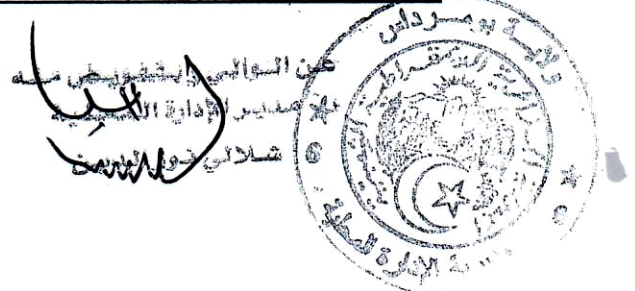 عن الوالي وبتفويض منه
مدير الإدارة المحلية
شلالي نور الدين
ولاية بومرداس
الجمهورية الجزائرية الديمقراطية الشعبية
مديرية الإدارة المحلية
6